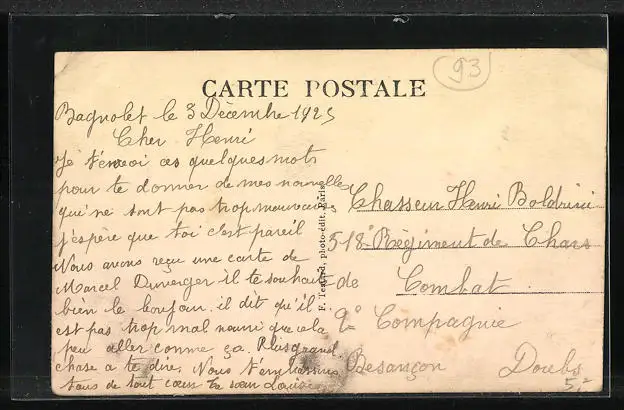 93
CARTE POSTALE
Bagnolet le 3 Décembre 1925
Cher Henri
Je t'envoi ces quelques mots
pour te donner de mes nouvelles
qui ne sont pas trop mauvaises
j'espère que toi c'est pareil
Nous avons reçu une carte de
Marcel Duverger il te souhaite
bien le bonjour. il dit qu'il
est pas trop mal nourri que cela
peu aller comme ça. Plus grand
chose a te dire. Nous t'embrassons
tous de tout cœur ta sœur Louise
F. photo-édit. Paris
Chasseur Henri Boldrini
518e Régiment de Chars
de Combat
2e Compagnie
Besançon Doubs
5,-